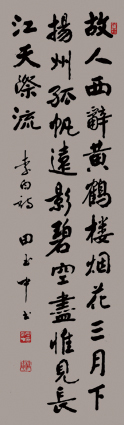 故人西辭黄鶴楼烟花三月下
揚州孤帆遠影碧空盡惟見長
江天際流
李白詩 田玉中书